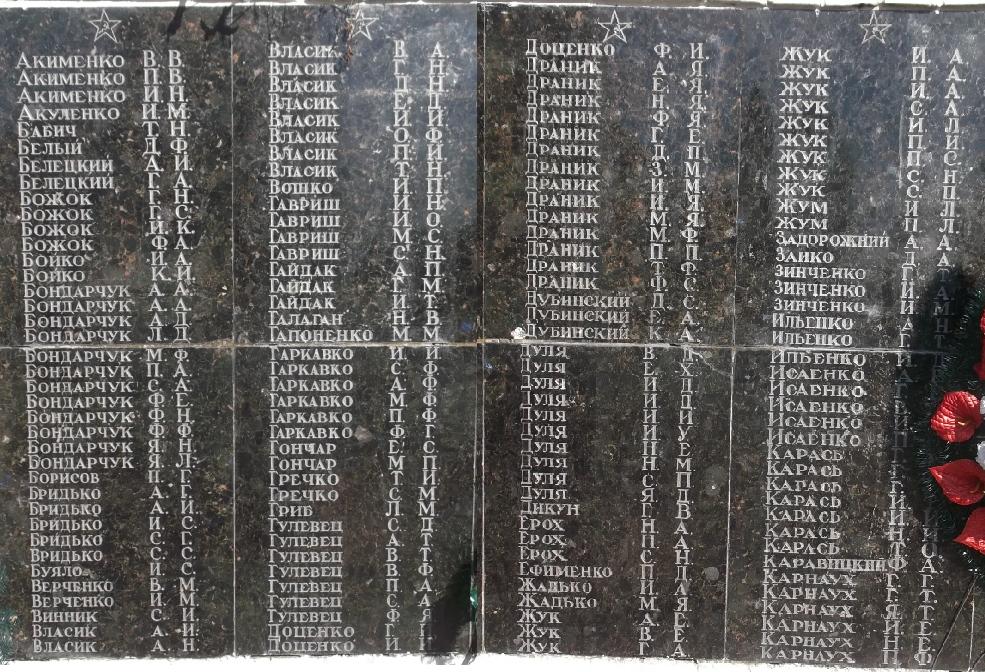 Акименко В. В.
Акименко П. В.
Акименко И. Н.
Акуленко И. М.
Бабич Т. Н.
Белый Д. Ф.
Белецкий А. И.
Белецкий Г. А.
Божок Г. Н.
Божок Г. С.
Божок И. К.
Божок Ф. А.
Бойко И. А.
Бойко К. И.
Бондарчук А. А.
Бондарчук А. А.
Бондарчук А. Д.
Бондарчук Л. Д.
Бондарчук М. Ф.
Бондарчук П. А.
Бондарчук С. А.
Бондарчук Ф. Е.
Бондарчук Ф. Н.
Бондарчук Ф. Ф.
Бондарчук Я. Н.
Бондарчук Я. Л.
Борисов Н. Г.
Бридько А. Г.
Бридько Г. И.
Бридько И. С.
Бридько С. Г.
Бридько С. С.
Буяло И. С.
Верченко В. М.
Верченко И. М.
Винник С. И.
Власик А. И.
Власик А. Н.
Власик В. А.
Власик Г. Н.
Власик Д. Н.
Власик Е. Д.
Власик И. И.
Власик О. Ф.
Власик П. И.
Власик Т. Н.
Вошко И. П.
Гавриш И. Н.
Гавриш И. О.
Гавриш М. С.
Гавриш С. Н.
Гайдак А. П.
Гайдак Г. М.
Гайдак И. Т.
Галаган Н. В.
Гапоненко М. М.
Гаркавко И. И.
Гаркавко С. Ф.
Гаркавко А. Ф.
Гаркавко М. Ф.
Гаркавко П. Ф.
Гаркавко Ф. Г.
Гончар Е. С.
Гончар М. П.
Гречко Т. И.
Гречко С. М.
Гриб Л. М.
Гулевец С. Д.
Гулевец А. Т.
Гулевец В. Т.
Гулевец В. Ф.
Гулевец П. А.
Гулевец С. А.
Гулевец Ф. Я.
Доценко Г.
Доценко И.
Доценко Ф. И.
Драник А. Я.
Драник Е. Я.
Драник Н. Я.
Драник Ф. Я.
Драник Г. Е.
Драник Д. П.
Драник З. М.
Драник И. М.
Драник И. Я.
Драник М. Я.
Драник М. Ф.
Драник П. П.
Драник Т. Ф.
Драник Ф. С.
Дубинский П. С.
Дубинский Е. А.
Дубинский К. А.
Дуля В. К.
Дуля Е. Х.
Дуля И. П.
Дуля И. Ц.
Дуля И. И.
Дуля И. У.
Дуля И. Е.
Дуля Н. М.
Дуля С. П.
Дуля Я. Д.
Дикун Г. В.
Ерох Н. А.
Ерох П. А.
Ерох С. Н.
Ефименко П. Д.
Жадько И. Л.
Жадько М. А.
Жук А. Я.
Жук В. Е.
Жук Г. А.
Жук И. А.
Жук П. А.
Жук И. А.
Жук С. А.
Жук И. Л.
Жук П. И.
Жук П. С.
Жук С. Н.
Жук С. П.
Жум И. Л.
Жум П. Л.
Задорожний А. А.
Заико Д. А.
Зинченко Г.
Зинченко И.
Зинченко И.
Ильешко А.
Ильешко Г.
Ильенко
Исаенко
Исаенко
Исаенко
Исаенко
Исаенко
Карась
Карась
Карась
Карась
Карась
Карась
Карась
Каравицкий
Карнаух
Карнаух
Карнаух
Карнаух
Карнаух
Карнаух